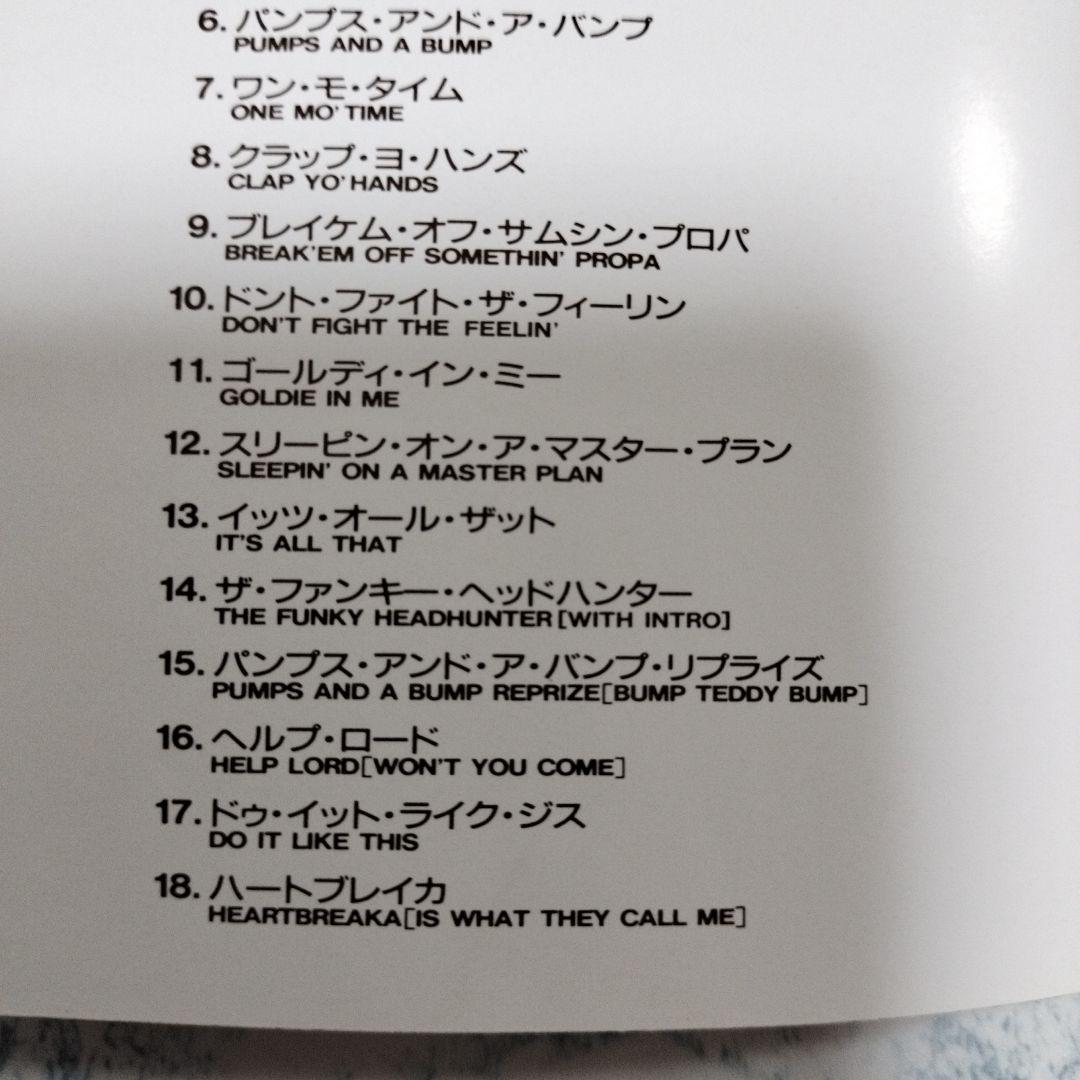 6. パンプス・アンド・ア・バンプ
PUMPS AND A BUMP
7. ワン・モ・タイム
ONE MO' TIME
8. クラップ・ヨ・ハンズ
CLAP YO' HANDS
9. ブレイケム・オフ・サムシン・プロパ
BREAK'EM OFF SOMETHIN' PROPA
10. ドント・ファイト・ザ・フィーリン
DON'T FIGHT THE FEELIN'
11. ゴールディ・イン・ミー
GOLDIE IN ME
12. スリーピン・オン・ア・マスター・プラン
SLEEPIN' ON A MASTER PLAN
13. イッツ・オール・ザット
IT'S ALL THAT
14. ザ・ファンキー・ヘッドハンター
THE FUNKY HEADHUNTER[WITH INTRO]
15. パンプス・アンド・ア・バンプ・リプライズ
PUMPS AND A BUMP REPRIZE[BUMP TEDDY BUMP]
16. ヘルプ・ロード
HELP LORD[WON'T YOU COME]
17. ドゥ・イット・ライク・ジス
DO IT LIKE THIS
18. ハートブレイカ
HEARTBREAKA[IS WHAT THEY CALL ME]